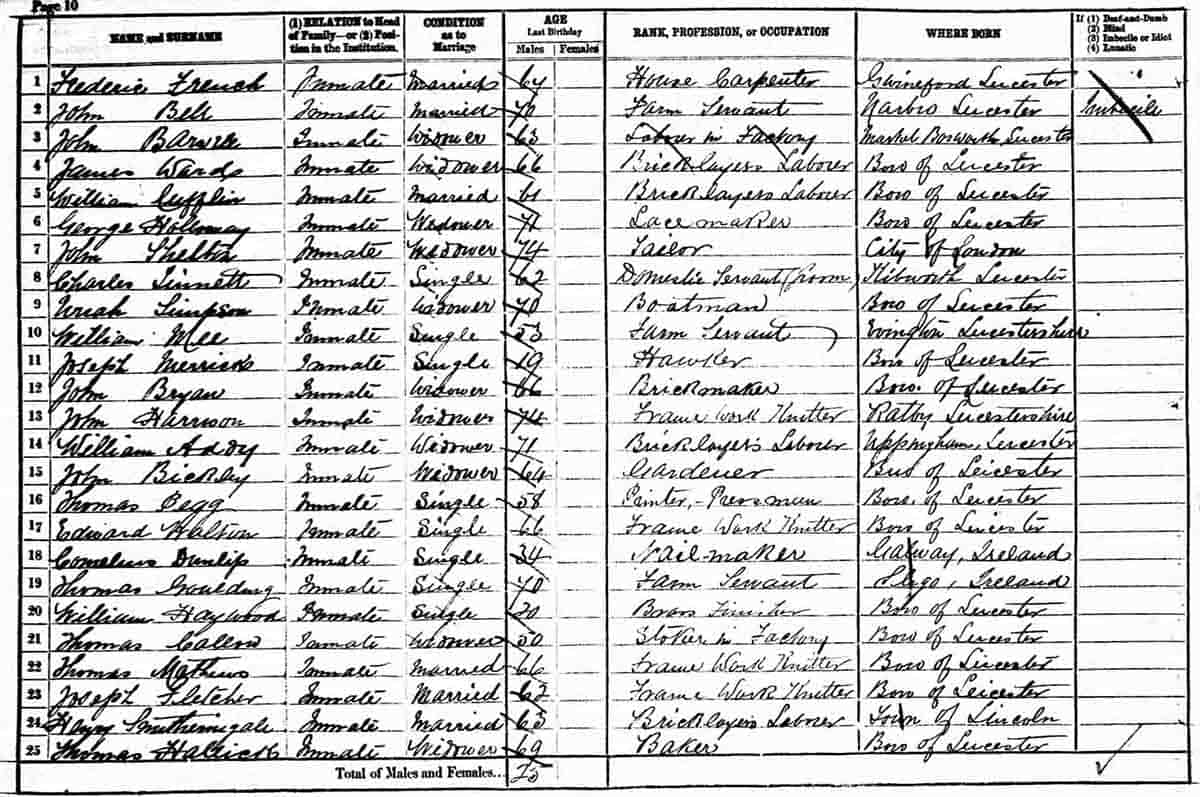 Page 10
NAME and SURNAME (1) RELATION to Head of Family—or (2) Position in the Institution. CONDITION as to Marriage AGE Last Birthday Males Females RANK, PROFESSION, or OCCUPATION WHERE BORN If (1) Deaf-and-Dumb (2) Blind (3) Imbecile or Idiot (4) Lunatic
1 Frederic French Inmate Married 64 House Carpenter Leicester
2 John Bell Inmate Married 70 Farm Servant Narbro Leicester Imbecile
3 John Inmate Widower 63 Labour in Factory Market Bosworth Leicester
4 James Wards Inmate Widower 66 Bricklayers Labourer Boro of Leicester
5 William Cufflin Inmate Married 61 Bricklayers Labourer Boro of Leicester
6 George Holloway Inmate Widower 71 Lace maker Boro of Leicester
7 John Shelton Inmate Widower 74 Tailor City of London
8 Charles Sinnett Inmate Single 62 Domestic Servant (Groom) Kibworth Leicester
9 Uriah Simpson Inmate Widower 70 Boatman Boro of Leicester
10 William Mee Inmate Single 53 Farm Servant Evington Leicestershire
11 Joseph Merrick Inmate Single 19 Hawker Boro of Leicester
12 John Bryan Inmate Widower 66 Brickmaker Boro. of Leicester
13 John Harrison Inmate Widower 74 Frame Work Knitter Ratby Leicestershire
14 William Addy Inmate Widower 71 Bricklayers Labourer Uppingham, Leicester
15 John Bickley Inmate Widower 64 Gardener Boro of Leicester
16 Thomas Pegg Inmate Single 58 Printer, - Pressman Boro. of Leicester
17 Edward Halson Inmate Single 66 Frame Work Knitter Boro of Leicester
18 Cornelius Dunlip Inmate Single 34 Nail-maker Galway, Ireland
19 Thomas Goulding Inmate Single 70 Farm Servant Sligo, Ireland
20 William Haywood Inmate Single 20 Brass Finisher Boro of Leicester
21 Thomas Callow Inmate Widower 50 Stoker in Factory Boro of Leicester
22 Thomas Mathews Inmate Married 66 Frame Work Knitter Boro of Leicester
23 Joseph Fletcher Inmate Married 62 Frame Work Knitter Boro of Leicester
24 Inmate Married 63 Bricklayers Labourer Town of Lincoln
25 Thomas Inmate Widower 69 Baker Boro of Leicester
Total of Males and Females... 25